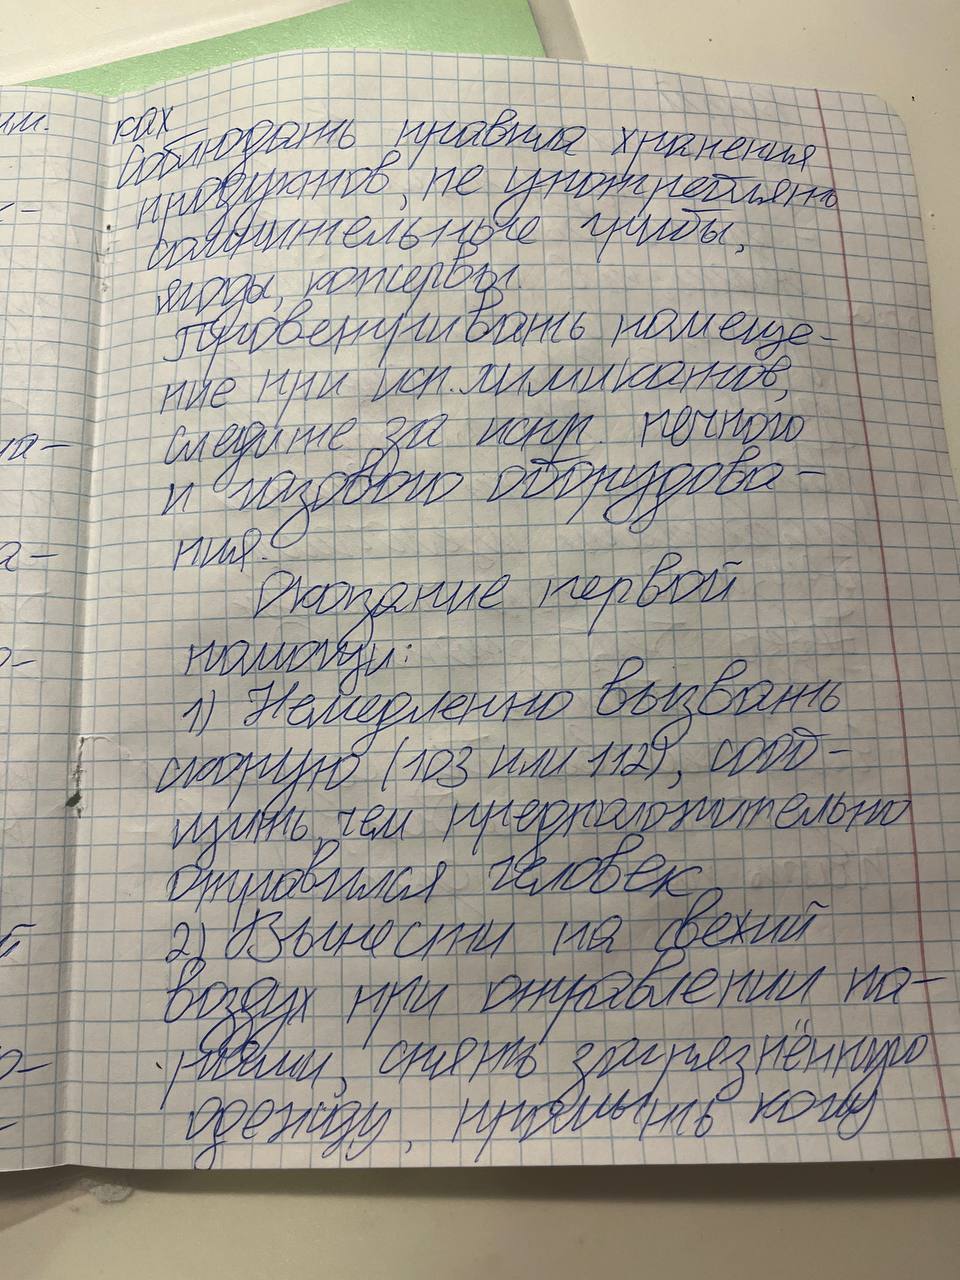 ках
Соблюдать правила хранения
продуктов, не употреблять
сомнительные грибы,
ягоды, консервы.
Проветривать помеще-
ние при исп. химикатов,
следите за испр. печного
и газового оборудова-
ния.
Оказание первой
помощи:
1) Немедленно вызвать
скорую (103 или 112), сооб-
щить, чем предположительно
отравился человек
2) Вынести на свежий
воздух при отравлении па-
рами, снять загрязнённую
одежду, промыть кожу